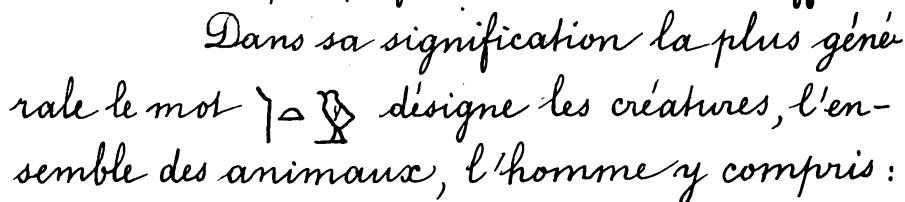 Dans sa signification la plus géné-
rale le mot désigne les créatures, l'en-
semble des animaux, l'homme y compris :